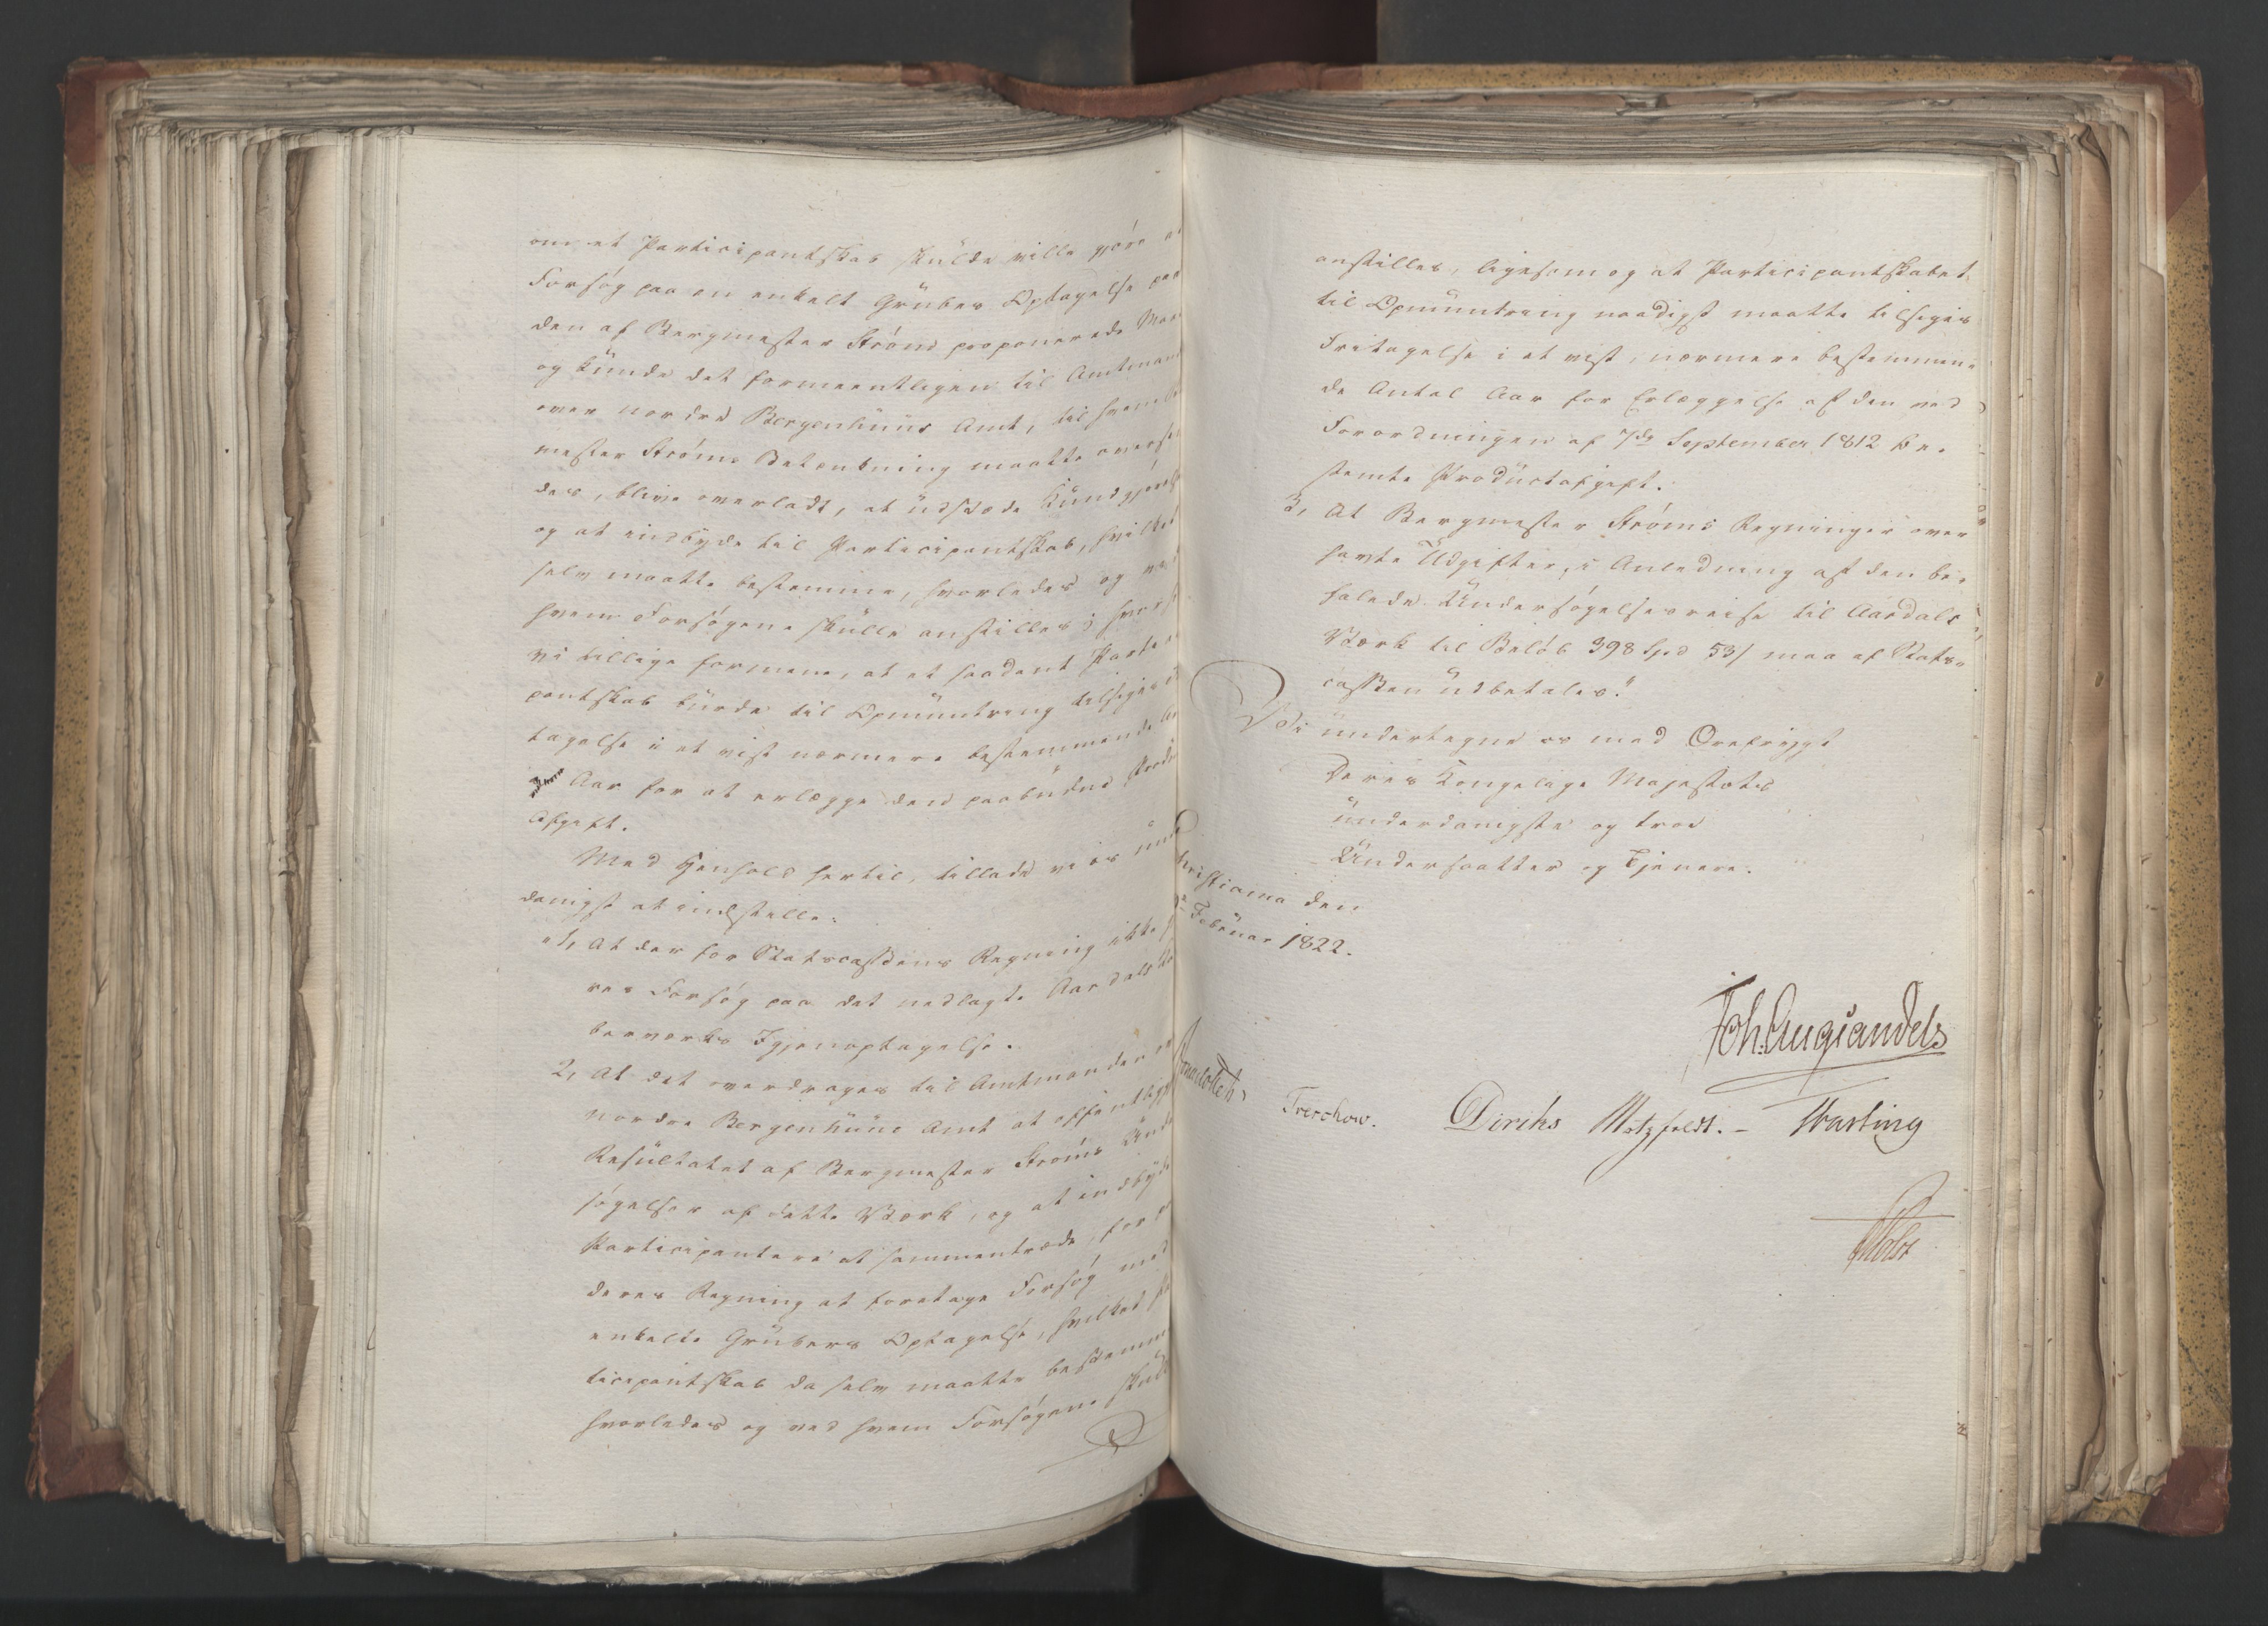 om et Participantskab skulde ville gjøre
Forsøg paa en enkelt Grubes Optagelse paa
den af Bergmester Strøm proponerede Maa
og kunde det formeentligen til Amtmand
over nordre Bergenhuus Amt, til hvem
mester Strøms Betænkning maatte oversen
des, blive overladt, at udstæde Kundgjørelse
og at indbyde til Participantskab, hvilket
selv maatte bestemme, hvorledes og ved
hvem Forsøgene skulle anstilles; hvorhos
vi tillige formene, at et saadant Parti
pantskab burde til Opmuntring tilsiges
tagelse i et vist nærmere bestemmende
Aar for at erlægge den paabudne Prod
Afgift.
Med Henhold hertil, tillade vi os und
danigst at indstille:
"1, At der for Statscassens Regning ikke
res Forsøg paa det nedlagte Aardals Ko
berværks Igjenoptagelse.
2, At det overdrages til Amtmanden o
nordre Bergenhuus Amt at offentligg
Resultatet af Bergmester Strøms Und
søgelser af dette Værk, og at indbyde
Participantere at sammentræde, for
deres Regning at foretage Forsøg med
enkelte Grubers Optagelse, hvilket
ticipantskab da selv maatte bestemme
hvorledes og ved hvem Forsøgene skul
anstilles, ligesom og at Participantskabet
til Opmuntring naadigst maatte tilsiges
Fritagelse i et vist, nærmere bestemmen-
de Antal Aar for Erlæggelse af den ved
Forordningen af 7de September 1812 be-
stemte Productafgift.
3, At Bergmester Strøms Regninger over
havte Udgifter, i Anledning af den be-
falede Undersøgelsesreise til Aardals
Værk til Beløb 398 Spd 53 / maa af Stats-
cassen udbetales."
Vi undertegne os med Ærefrygt
Deres Kongelige Majestæts
underdanigste og troe
Undersaatter og Tjenere.
hristiania den
Februar 1822.
Joh. Aug. Sandels
Treschow. Diriks Motzfeldt. - Fasting
Holst